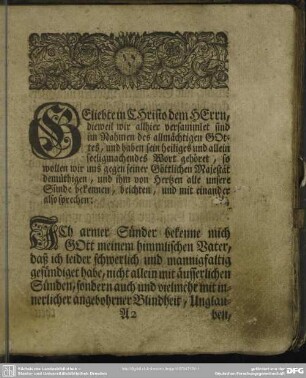 GEliebte in CHristo dem HErrn,
dieweil wir allhier versammlet sind
im Nahmen des allmächtigen GOt-
tes, und haben sein heiliges und allein
seeligmachendes Wort gehöret, so
wollen wir uns gegen seiner Göttlichen Majestät
demüthigen, und ihm von Hertzen alle unsere
Sünde bekennen, beichten, und mit einander
also sprechen:
ICh armer Sünder bekenne mich
GOtt meinem himmlischen Vater,
daß ich leider schwerlich und mannigfaltig
gesündiget habe, nicht allein mit äusserlichen
Sünden, sondern auch und vielmehr mit in-
nerlicher angebohrner Blindheit, Unglau-
A2 ben,